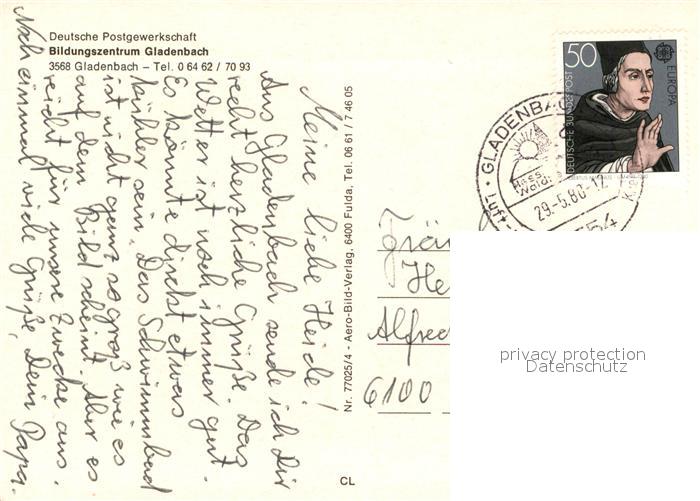 Deutsche Postgewerkschaft
Bildungszentrum Gladenbach
3568 Gladenbach – Tel. 0 64 62 / 70 93
Meine liebe Heide!
Aus Gladenbach sende ich Dir
recht herzliche Grüße. Das
Wetter ist noch immer gut.
Es könnte direkt etwas
kühler sein. Das Schwimmbad
ist nicht ganz so groß wie es
auf dem Bild scheint. Aber es
reicht für unsere Zwecke aus.
Noch einmal viele Grüße, Dein Papa.
Nr. 77025/4 - Aero-Bild-Verlag, 6400 Fulda, Tel. 06 61 / 7 46 05
CL
50
DEUTSCHE BUNDESPOST
EUROPA
GLADENBAC
Hess.
29.-5.80-12
3554
Fräu
He
Alfred
6100
privacy protection
Datenschutz